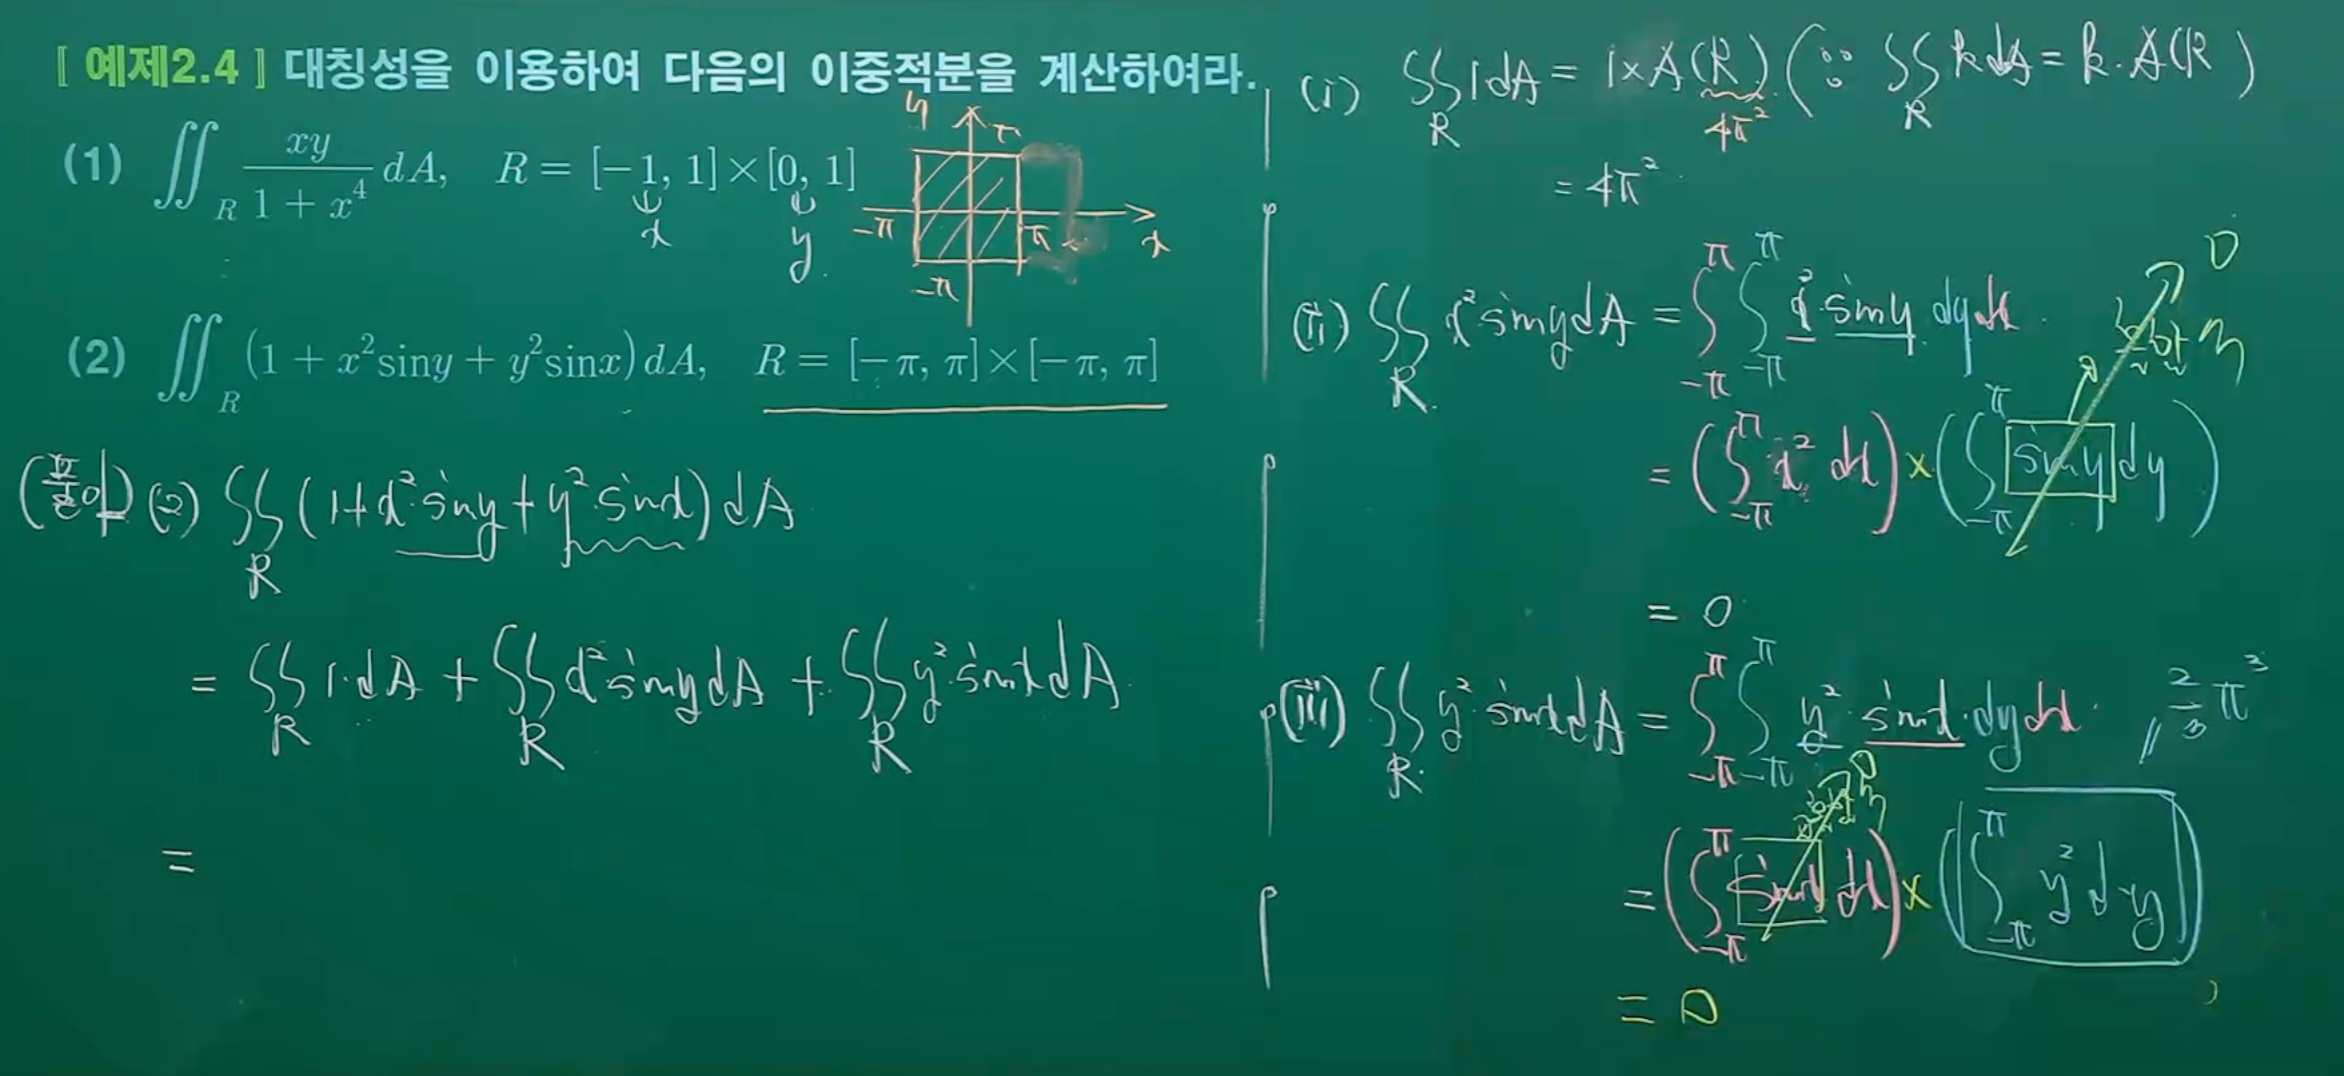 [ 예제2.4 ] 대칭성을 이용하여 다음의 이중적분을 계산하여라.
(1) ∬_R xy/(1 + x⁴) dA, R = [−1, 1] × [0, 1]
x y
y π −π π x −π
(2) ∬_R (1 + x² siny + y² sinx) dA, R = [−π, π] × [−π, π]
(풀이) (2) ∬_R (1 + x² · siny + y² · sinx) dA
= ∬_R 1 · dA + ∬_R x² · siny dA + ∬_R y² · sinx dA
=
(i) ∬_R 1 dA = 1 × A(R) (∵ ∬_R k dA = k · A(R))
4π²
= 4π²
(ii) ∬_R x² siny dA = ∫_{−π}^{π} ∫_{−π}^{π} x² · siny dy dx
= (∫_{−π}^{π} x² dx) × (∫_{−π}^{π} siny dy) 0
= 0
(iii) ∬_R y² · sinx dA = ∫_{−π}^{π} ∫_{−π}^{π} y² · sinx · dy dx
= (∫_{−π}^{π} sinx dx) × (∫_{−π}^{π} y² dy) 0
2/3 π³
= 0